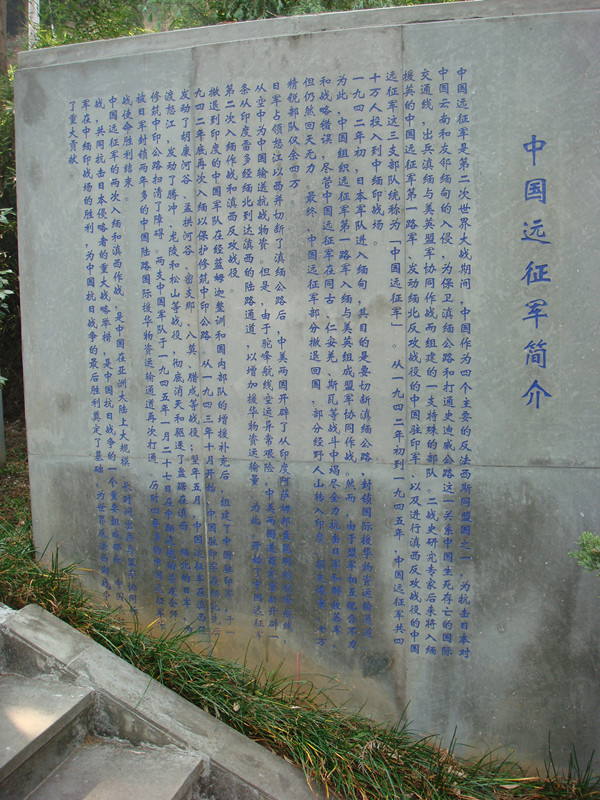 中国远征军简介
中国远征军是第二次世界大战期间，中国作为四个主要的反法西斯同盟国之一，为抗击日本对
中国云南和友邻缅甸的入侵，为保卫滇缅公路和打通史迪威公路这一关系中国生死存亡的国际
交通线，出兵滇缅与美英盟军协同作战而组建的一支特殊的部队。二战史研究专家后来将入缅
援英的中国远征军第一路军、发动缅北反攻战役的中国驻印军、以及进行滇西反攻战役的中国
远征军这三支部队统称为「中国远征军」。从一九四二年初到一九四五年，中国远征军共四
十万人投入到中缅印战场。
一九四二年初，日本军队进入缅甸，其目的是要切断滇缅公路，封锁国际援华物资运输通道
为此，中国组织远征军第一路军入缅与美英组成盟军协同作战。然而，由于盟军相互配合不力
和战略错误，尽管中国远征军在同古、仁安羌、斯瓦等战斗中竭尽全力抗击日军和解救英军
但仍然回天无力。最终，中国远征军部分撤退回国，部分经野人山转入印度，十万
精锐部队仅余四万。
日军占领怒江以西并切断了滇缅公路后，中美两国开辟了从印度阿萨姆邦
从空中为中国输送抗战物资。但是，由于驼峰航线空运异常艰险，中美两国开辟一
条从印度雷多经缅北到达滇西的陆路通道，以增加援华物资运输量。为此，中国远征军
第二次入缅作战和滇西反攻战役。
撤退到印度的中国军队在经蓝姆迦整训和国内部队的增援补充后，组建了中国驻印军，于一
九四二年底再次入缅以保护修筑中印公路。从一九四三年十月开始，中国驻印军在缅北先后
发动了胡康河谷、孟拱河谷、密支那、八莫、腊戍等战役；翌年五月，中国远征军在滇西强
渡怒江，发动了腾冲、龙陵和松山等战役，彻底消灭和驱逐了盘踞在滇西、缅北的日军，
修筑中印公路扫清了障碍。两支中国军队于一九四五年一月二十七日在中缅边境的芒友会师，
被日军封锁两年多的中国陆路国际援华物资运输通道再次打通。历时
战使命胜利结束。
中国远征军的两次入缅和滇西作战，是中国在亚洲大陆上大规模
战，共同抗击日本侵略者的重大战略举措，是中国抗日战争的一个重要组成部分。中国
军在中缅印战场的胜利，为中国抗日战争的最后胜利奠定了基础，为世界反法西斯战争
了重大贡献